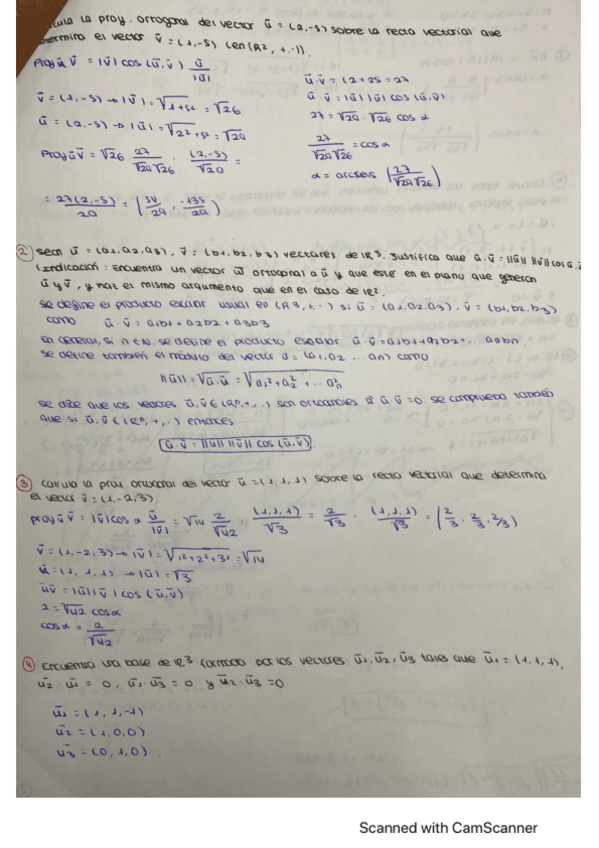 Calcula la proy. ortogonal del vector ū = (2,-5) sobre la recta vectorial que
determina el vector v̄ = (1,-5) (en (R², +, ·)).
Proy ū v̄ = |v̄| cos (ū,v̄) ū/|ū|
ū·v̄ = (2+25 = 27
v̄ = (1,-5) → |v̄| = √1+5² = √26
ū·v̄ = |ū| |v̄| cos (ū,v̄)
ū = (2,-5) → |ū| = √2²+5² = √29
27 = √29 · √26 cos α
Proy ū v̄ = √26 · 27/√29√26 · (2,-5)/√29 =
27/√29√26 = cos α
α = arccos (27/√29√26)
= 27(2,-5)/29 = (54/29, -135/29)
2 Sean ū = (a1,a2,a3), v̄ = (b1,b2,b3) vectores de R³. Justifica que ū·v̄ = ||ū|| ||v̄|| cos(ū,v̄
(Indicación: encuentra un vector w̄ ortogonal a ū y que esté en el plano que generan
ū y v̄, y haz el mismo argumento que en el caso de R².
se define el producto escalar usual en (R3,+,·) si ū = (a1,a2,a3), v̄ = (b1,b2,b3)
como ū·v̄ = a1b1+a2b2+a3b3
En general, si n∈N, se define el producto escalar ū·v̄ = a1b1+a2b2+... anbn.
se define también el módulo del vector ū = (a1,a2 ... an) como
||ū|| = √ū·ū = √a1²+a2² + ... an²
se dice que los vectores ū,v̄ ∈ (Rn,+,·) son ortogonales si ū·v̄ = 0. se comprueba también
que si ū,v̄ ∈ (Rn,+,·) entonces
ū·v̄ = ||ū|| ||v̄|| cos (ū,v̄)
3 Calcula la proy. ortogonal del vector ū = (1,1,1) sobre la recta vectorial que determina
el vector v̄ = (1,-2,3)
proy ū v̄ = |v̄| cos α ū/|v̄| = √14 2/√42 · (1,1,1)/√3 = 2/√3 · (1,1,1)/√3 = (2/3, 2/3, 2/3)
v̄ = (1,-2,3) → |v̄| = √1²+2²+3² = √14
ū = (1,1,1) → |ū| = √3
ūv̄ = |ū| |v̄| cos (ū,v̄)
2 = √42 cos α
cos α = 2/√42
4 Encuentra una base de R³ formada por los vectores ū1, ū2, ū3 tales que ū1 = (1,1,1),
ū2 · ū1 = 0, ū1·ū3 = 0 y ū2·ū3 = 0
ū1 = (1,1,-1)
ū2 = (1,0,0)
ū3 = (0,1,0)
Scanned with CamScanner